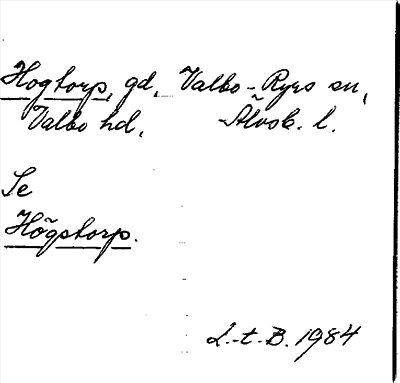 Hogtorp, gd, Valbo-Ryrs sn,
Valbo hd, Älvsb. l.
Se
Högstorp.
L.-t.-B. 1984